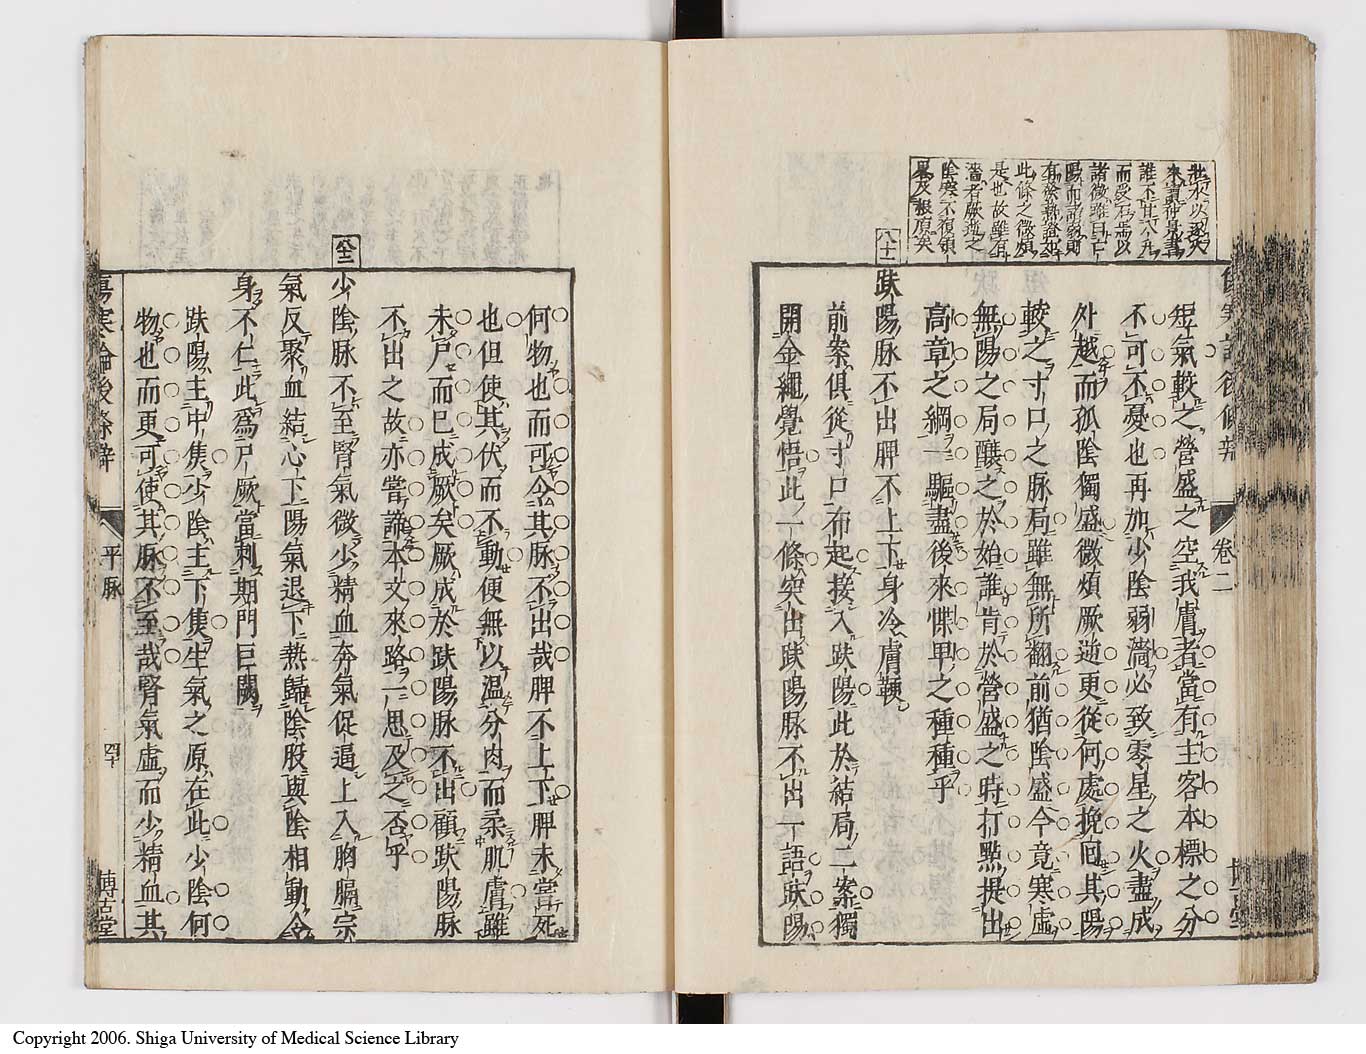 短氣較之營盛之空我膚者當有主客本標之分
不可不憂也再加少陰弱濇必致零星之火盡成
外越而孤陰獨盛微煩厥逆更從何處挽回其陽
較之寸口之脉局雖無所翻前猶陰盛今竟寒虛
無陽之局釀之於始誰肯於營盛之時打點提出
高章之綱一驅盡後來惵卑之種種乎
八十一
趺陽脉不出脾不上下身冷膚鞕
前案俱從寸口布起接入趺陽此於結局二案獨
開金繩覺悟此一條突出趺陽脉不出一語趺陽
卷二
何物也而可令其脉不出哉脾不上下脾未嘗死
也但使其伏而不動便無以温分肉而柔肌膚雖
未尸而已成厥矣厥成於趺陽脉不出顧趺陽脉
不出之故亦嘗諦本文來路一思及之否乎
少陰脉不至腎氣微少精血奔氣促逼上入胸膈宗
氣反聚血結心下陽氣退下熱歸陰股與陰相動令
身不仁此爲尸厥當刺期門巨闕
趺陽主中焦少陰主下焦生氣之原在此少陰何
物也而更可使其脉不至哉腎氣虛而少精血其
傷寒論後條辨
平脉
博古堂
Copyright 2006. Shiga University of Medical Science Library